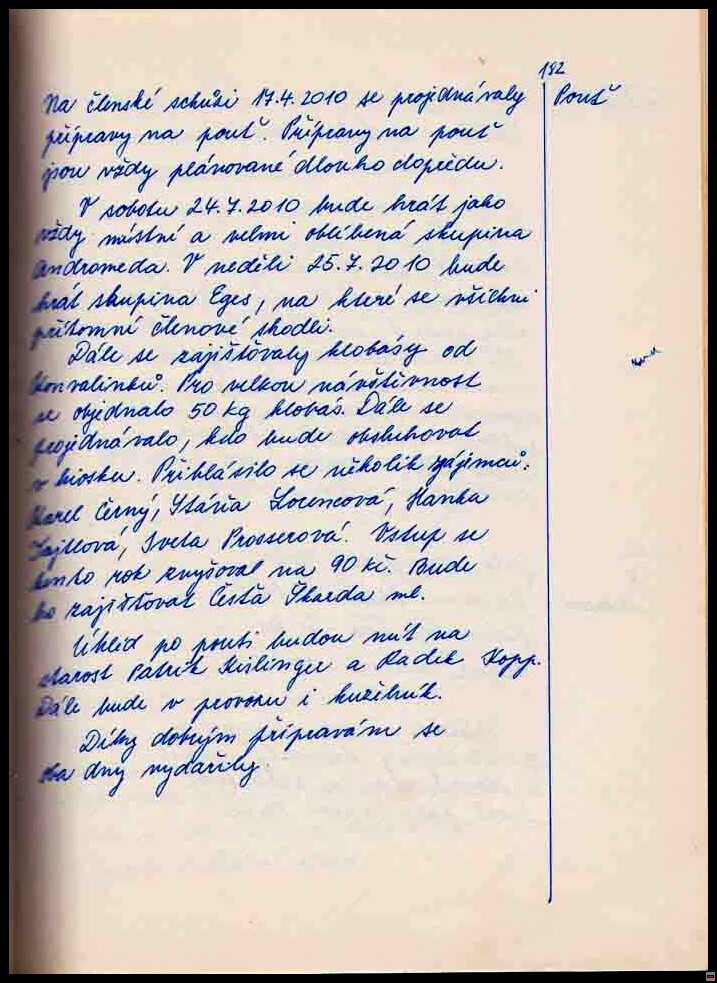 182
Pouť
Na členské schůzi 17.4.2010 se projednávaly
přípravy na pouť. Přípravy na pouť
jsou vždy plánované dlouho dopředu.
V sobotu 24.7.2010 bude hrát jako
vždy místní a velmi oblíbená skupina
Andromeda. V neděli 25.7.2010 bude
hrát skupina Eges, na které se všichni
přítomní členové shodli.
Dále se zajišťovaly klobásy od
Konvalinků. Pro velkou návštívnost
se objednalo 50 kg klobás. Dále se
projednávalo, kdo bude obsluhovat
v kiosku. Přihlásilo se několik zájemců:
Karel Černý, Stáňa Lorencová, Hanka
Zajtlová, Iveta Prosserová. Vstup se
tento rok zvyšoval na 90 kč. Bude
ho zajišťovat Česťa Škarda ml.
Úklid po pouti budou mít na
starost Patrik Kislinger a Radek Kopp.
Dále bude v provozu i kuželník.
Díky dobrým přípravám se
oba dny vydařily.